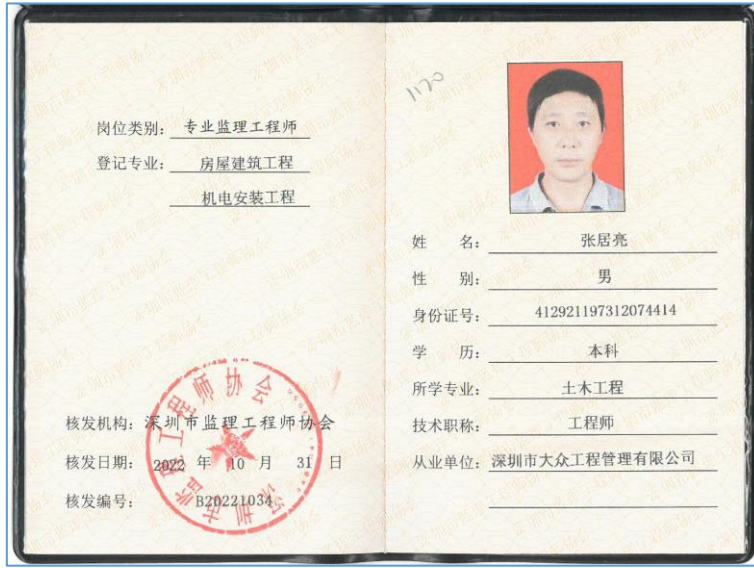 岗位类别：专业监理工程师
登记专业：房屋建筑工程
机电安装工程
核发机构：深圳市监理工程师协会
核发日期：2022 年 10 月 31 日
核发编号：B20221034
深圳市监理工程师协会
1170
姓名：张居亮
性别：男
身份证号：412921197312074414
学历：本科
所学专业：土木工程
技术职称：工程师
从业单位：深圳市大众工程管理有限公司